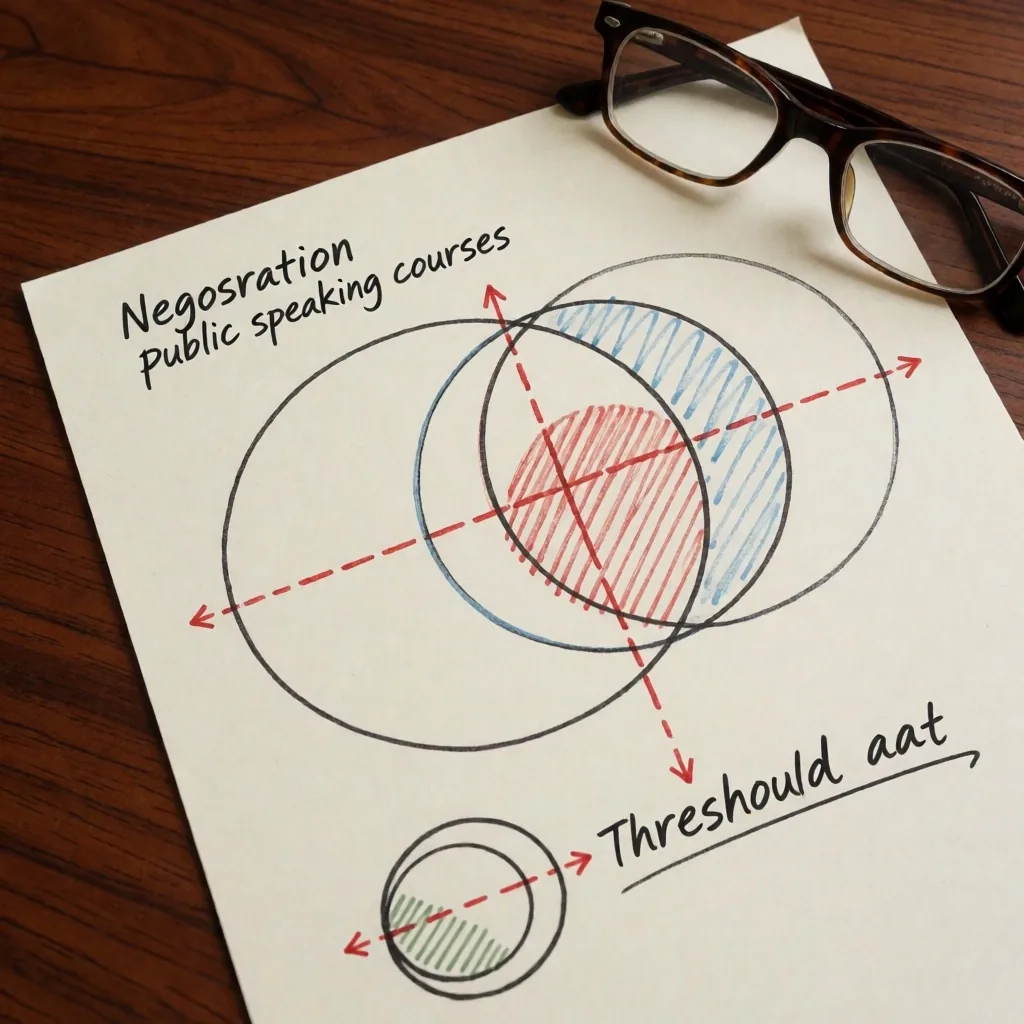 Negosration
public speaking courses
Threshould aat